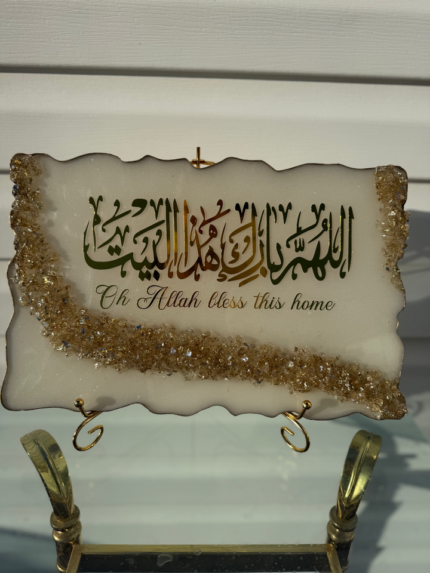 اللهُمَّ بَارِكْ هَذَا البَيْت
Oh Allah bless this home